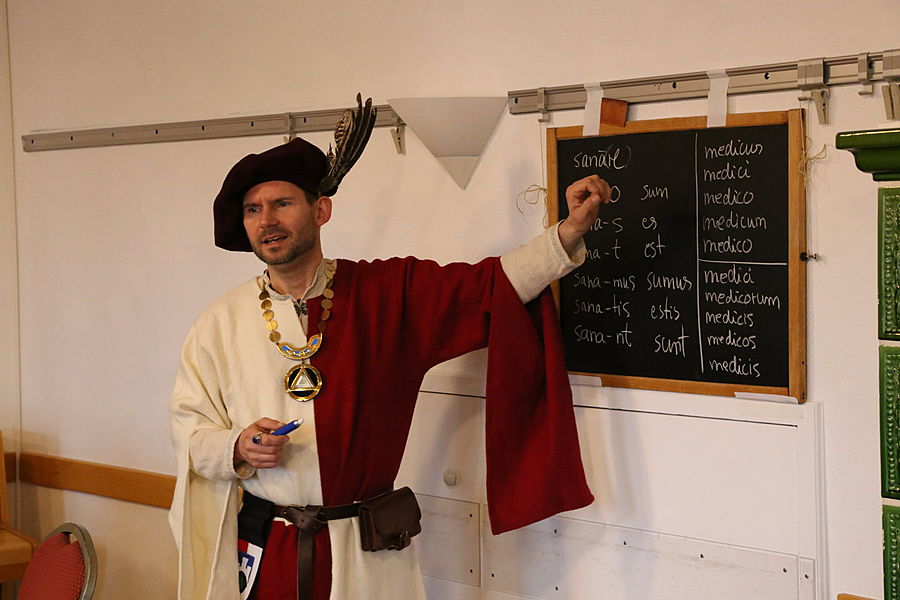 sanāre
sum
a-s es
na-t est
sana-mus sumus
sana-tis estis
sana-nt sunt
medicus
medici
medico
medicum
medico
medici
medicorum
medicis
medicos
medicis